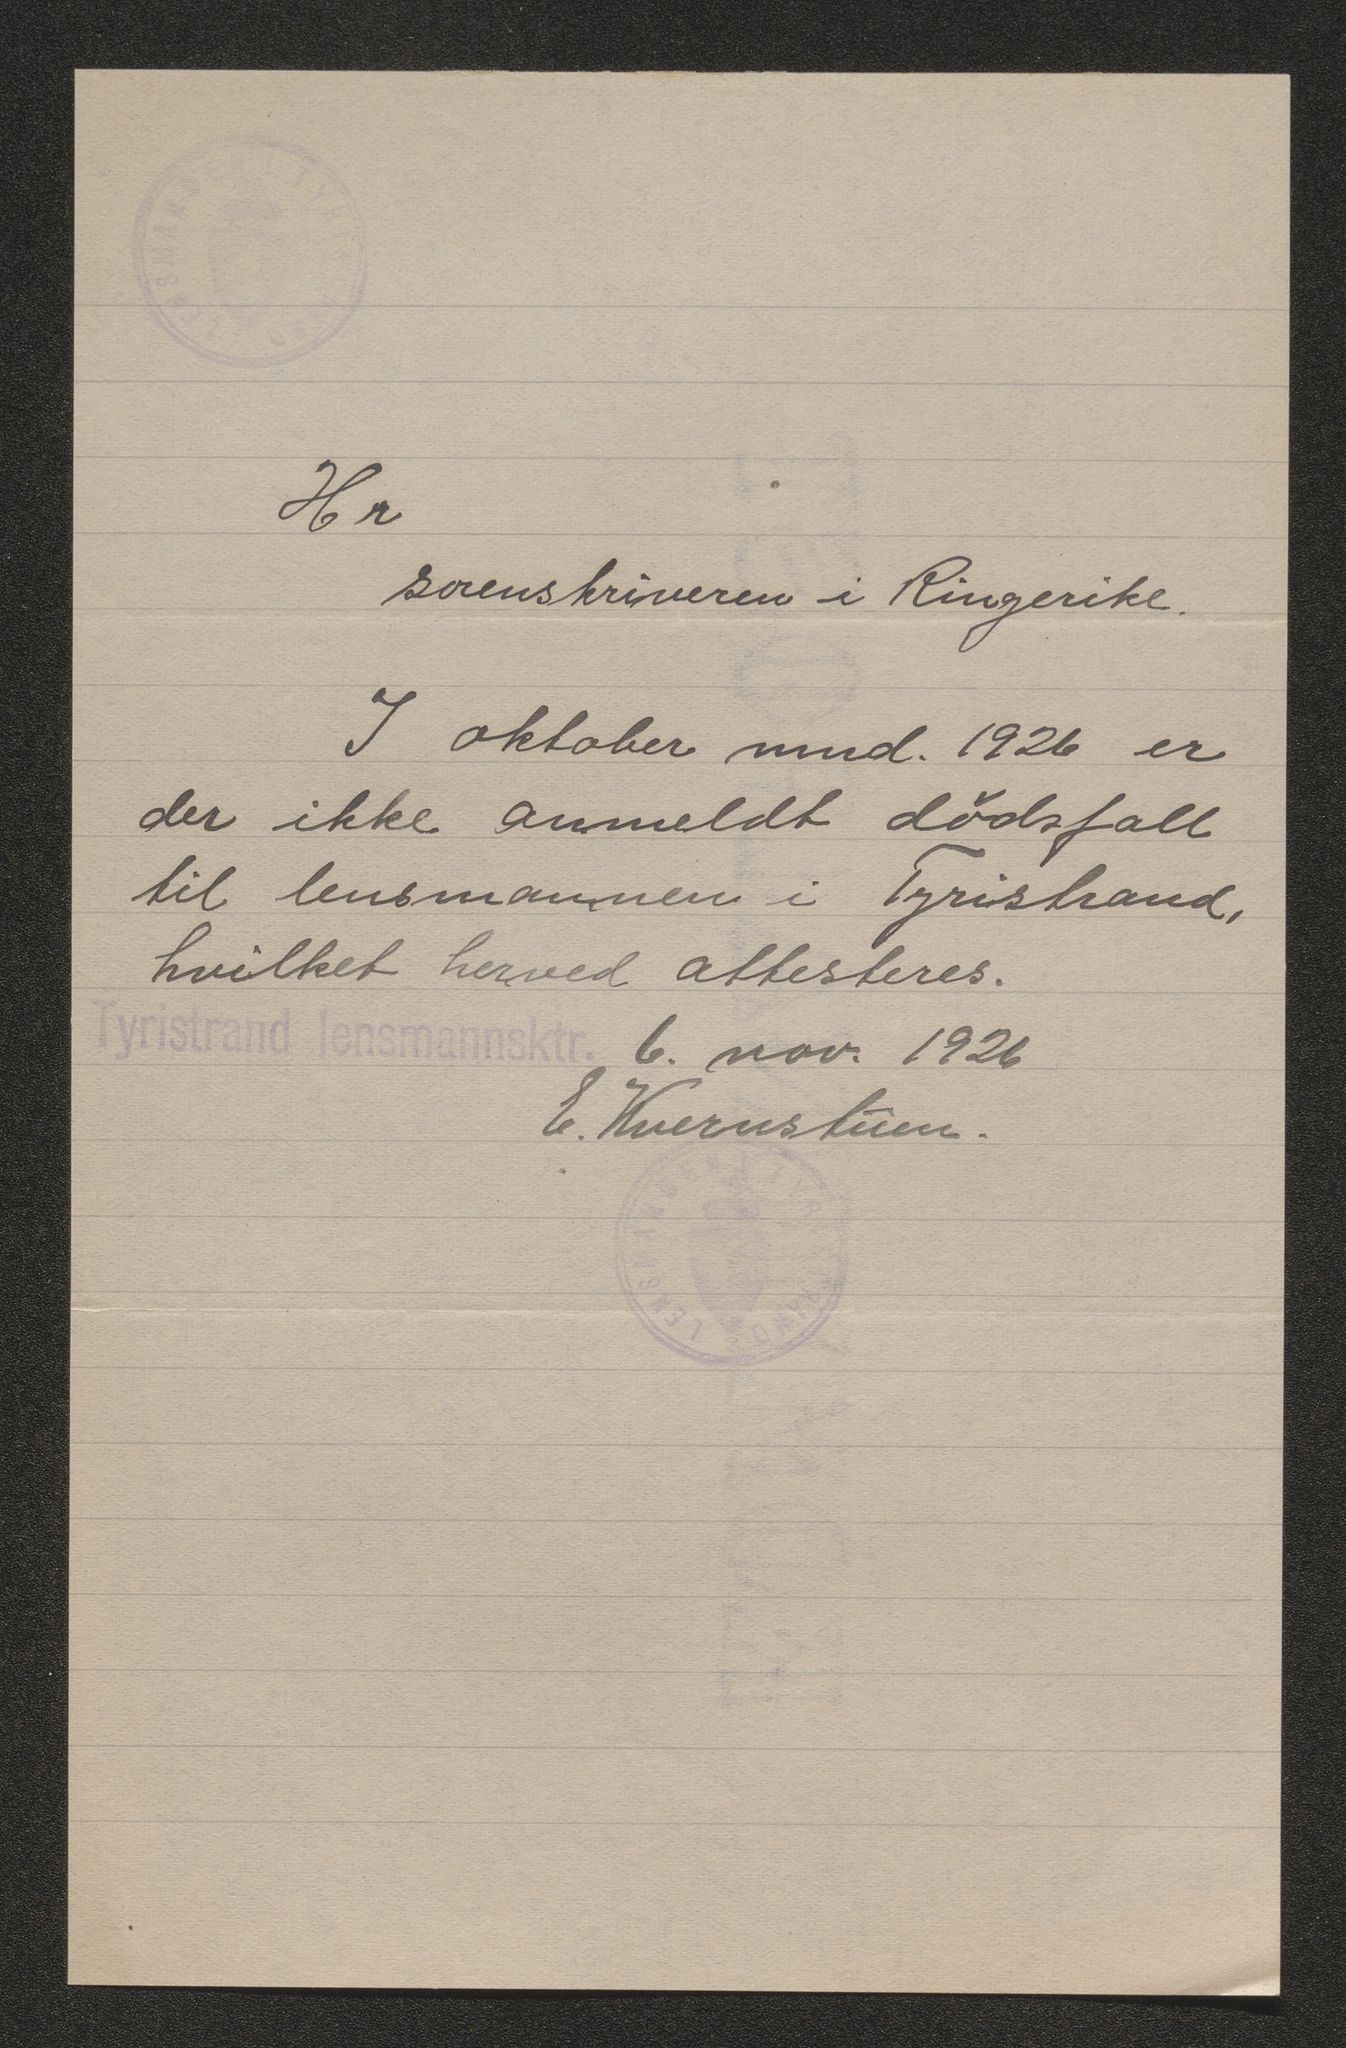 LENSMANDEN I TYRISTRAND
Hr
sorenskriveren i Ringerike.
I oktober mnd. 1926 er
der ikke anmeldt dödsfall
til lensmannen i Tyristrand,
hvilket herved attesteres.
Tyristrand lensmannsktr. 6. nov. 1926
E. Kvernstuen.
LENSMANDEN I TYRISTRAND